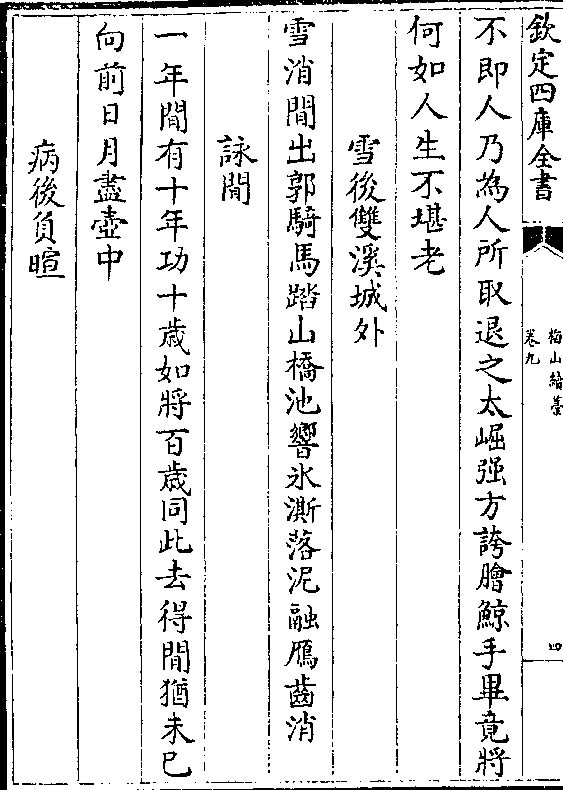 欽定四庫全書
梅山續藁
卷九
四
不即人乃為人所取退之太崛强方誇膾鯨手畢竟將
何如人生不堪老
雪後雙溪城外
雪消閒出郭騎馬踏山橋池響氷澌落泥融鴈齒消
詠閒
一年閒有十年功十歳如將百歳同此去得閒猶未已
向前日月盡壺中
病後負暄